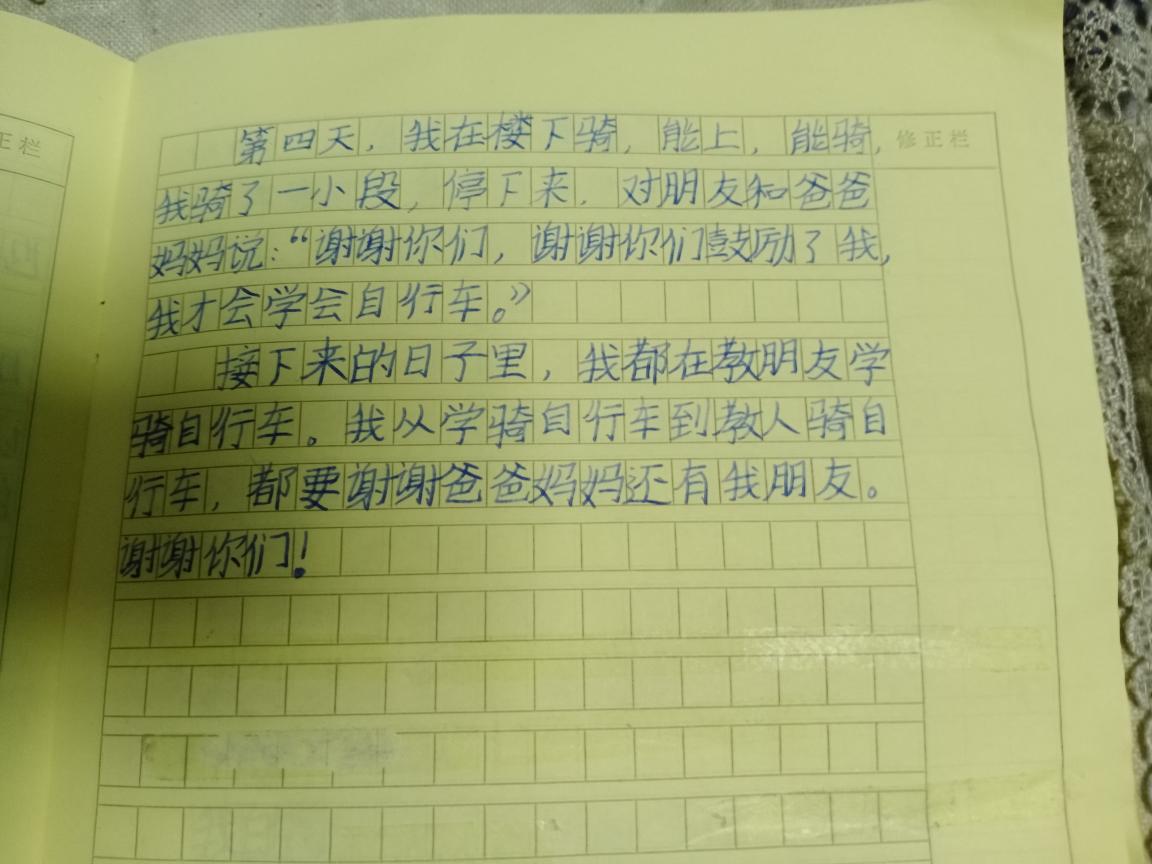 正栏
修正栏
第四天，我在楼下骑，能上，能骑，
我骑了一小段，停下来．对朋友和爸爸
妈妈说：“谢谢你们，谢谢你们鼓励了我，
我才会学会自行车。”
接下来的日子里，我都在教朋友学
骑自行车。我从学骑自行车到教人骑自
行车，都要谢谢爸爸妈妈还有我朋友。
谢谢你们！